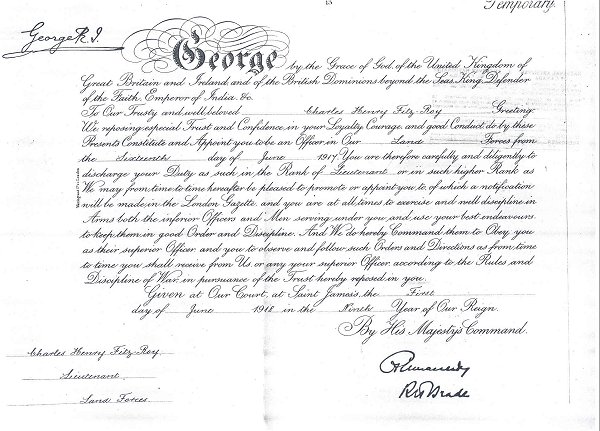 Temporary.
George R. I.
George by the Grace of God, of the United Kingdom of
Great Britain and Ireland and of the British Dominions beyond the Seas, King, Defender
of the Faith, Emperor of India, &c.
To Our Trusty and well beloved Charles Henry Fitz-Roy Greeting.
We, reposing especial Trust and Confidence in your Loyalty, Courage, and good Conduct, do by these
Presents Constitute and Appoint you to be an Officer in Our Land Forces from
the Sixteenth day of June 1917. You are therefore carefully and diligently to
discharge your Duty as such in the Rank of Lieutenant or in such higher Rank as
We may from time to time hereafter be pleased to promote or appoint you to, of which a notification
will be made in the London Gazette, and you are at all times to exercise and well discipline in
Arms both the inferior Officers and Men serving under you and use your best endeavours
to keep them in good Order and Discipline. And We do hereby Command them to Obey you
as their superior Officer and you to observe and follow such Orders and Directions as from time
to time you shall receive from Us, or any your superior Officer, according to the Rules and
Discipline of War, in pursuance of the Trust hereby reposed in you.
Given at Our Court, at Saint James's, the First
day of June 1918 in the Ninth Year of Our Reign.
By His Majesty's Command.
Charles Henry Fitz-Roy
Lieutenant
Land Forces.
RH Brade